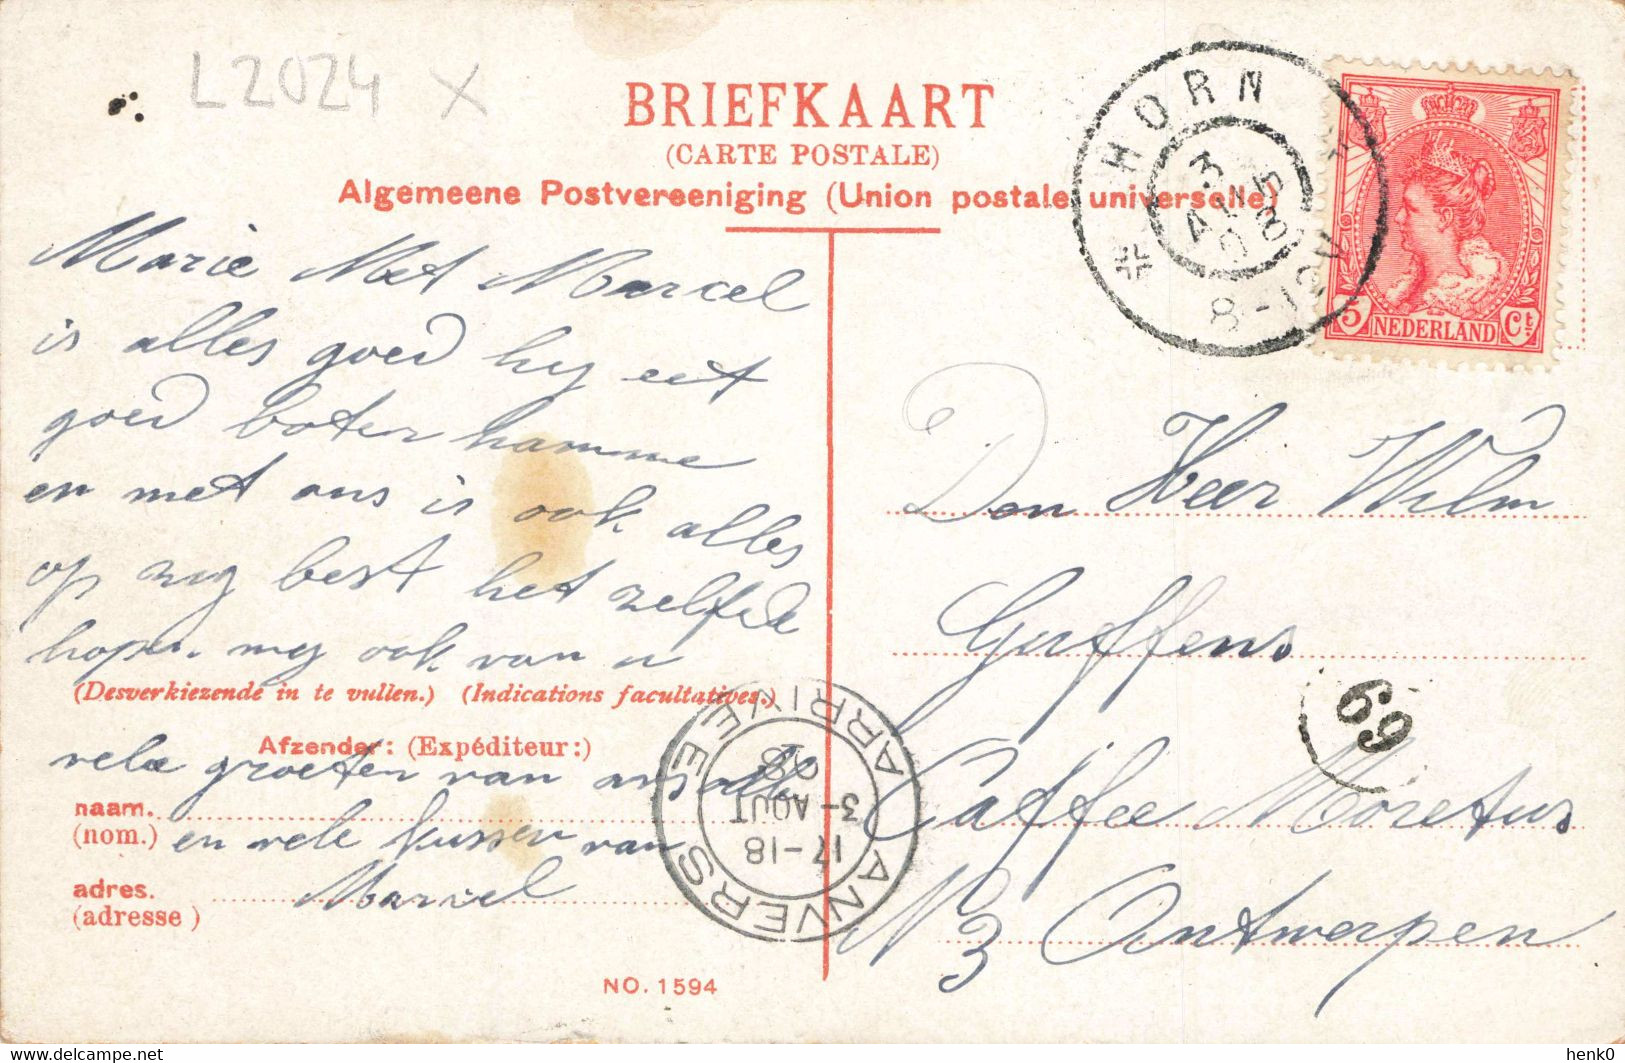 L2024 X
BRIEFKAART
(CARTE POSTALE)
Algemeene Postvereeniging (Union postale universelle)
HORN
3 AUG 08
8-12 N
5 NEDERLAND Ct.
Marie Met Marcel
is alles goed hy eet
goed boter hamme
en met ons is ook alles
op zyn best het zelfde
hopen wy ook van u
(Desverkiezende in te vullen.) (Indications facultatives.)
Afzender: (Expéditeur:)
vele groeten van ons alle
naam.
(nom.)
en vele kussen van
adres.
(adresse)
Marcel
NO. 1594
ANVERS ARRIVEE
17-18
3-AOUT
08
69
Den Heer Wilm
Guffens
Caffee Moretus
N 3 Antwerpen
henk0
www.delcampe.net